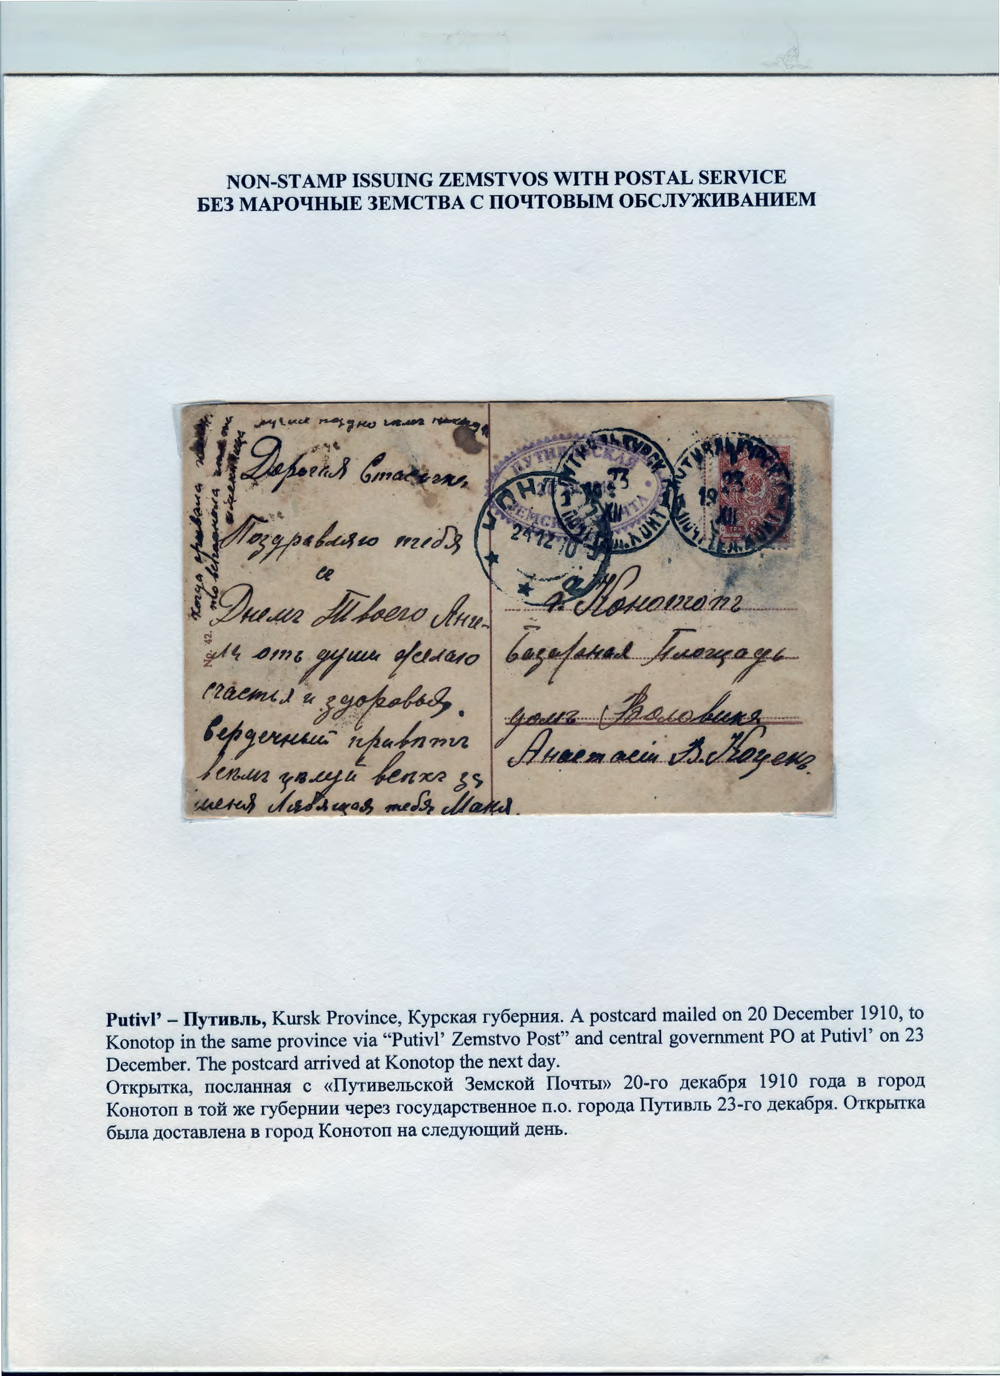 NON-STAMP ISSUING ZEMSTVOS WITH POSTAL SERVICE
БЕЗ МАРОЧНЫЕ ЗЕМСТВА С ПОЧТОВЫМ ОБСЛУЖИВАНИЕМ
Дорогая Стасичка
Поздравляю тебя
се
Днемъ Твоего Анге-
ла отъ души желаю
счастья и здоровья.
Сердечный приветъ
всемъ целуй всехъ за
меня Любящая тебя Маня.
No. 42.
ПУТИВЛЬСКАЯ
ЗЕМСКАЯ ПОЧТА
ПУТИВЛЬ КУРСК.
23
XII
ПОЧ.ТЕЛ.КОНТ.
ПУТИВЛЬ КУРСК.
19 23
XII
ПОЧ.ТЕЛ.КОНТ.
24 12 10
г. Конотопъ
Базарная Площадь
домъ Воловика
Анастасіи В. Коценъ.
Putivl’ – Путивль, Kursk Province, Курская губерния. A postcard mailed on 20 December 1910, to
Konotop in the same province via “Putivl’ Zemstvo Post” and central government PO at Putivl’ on 23
December. The postcard arrived at Konotop the next day.
Открытка, посланная с «Путивельской Земской Почты» 20-го декабря 1910 года в город
Конотоп в той же губернии через государственное п.о. города Путивль 23-го декабря. Открытка
была доставлена в город Конотоп на следующий день.